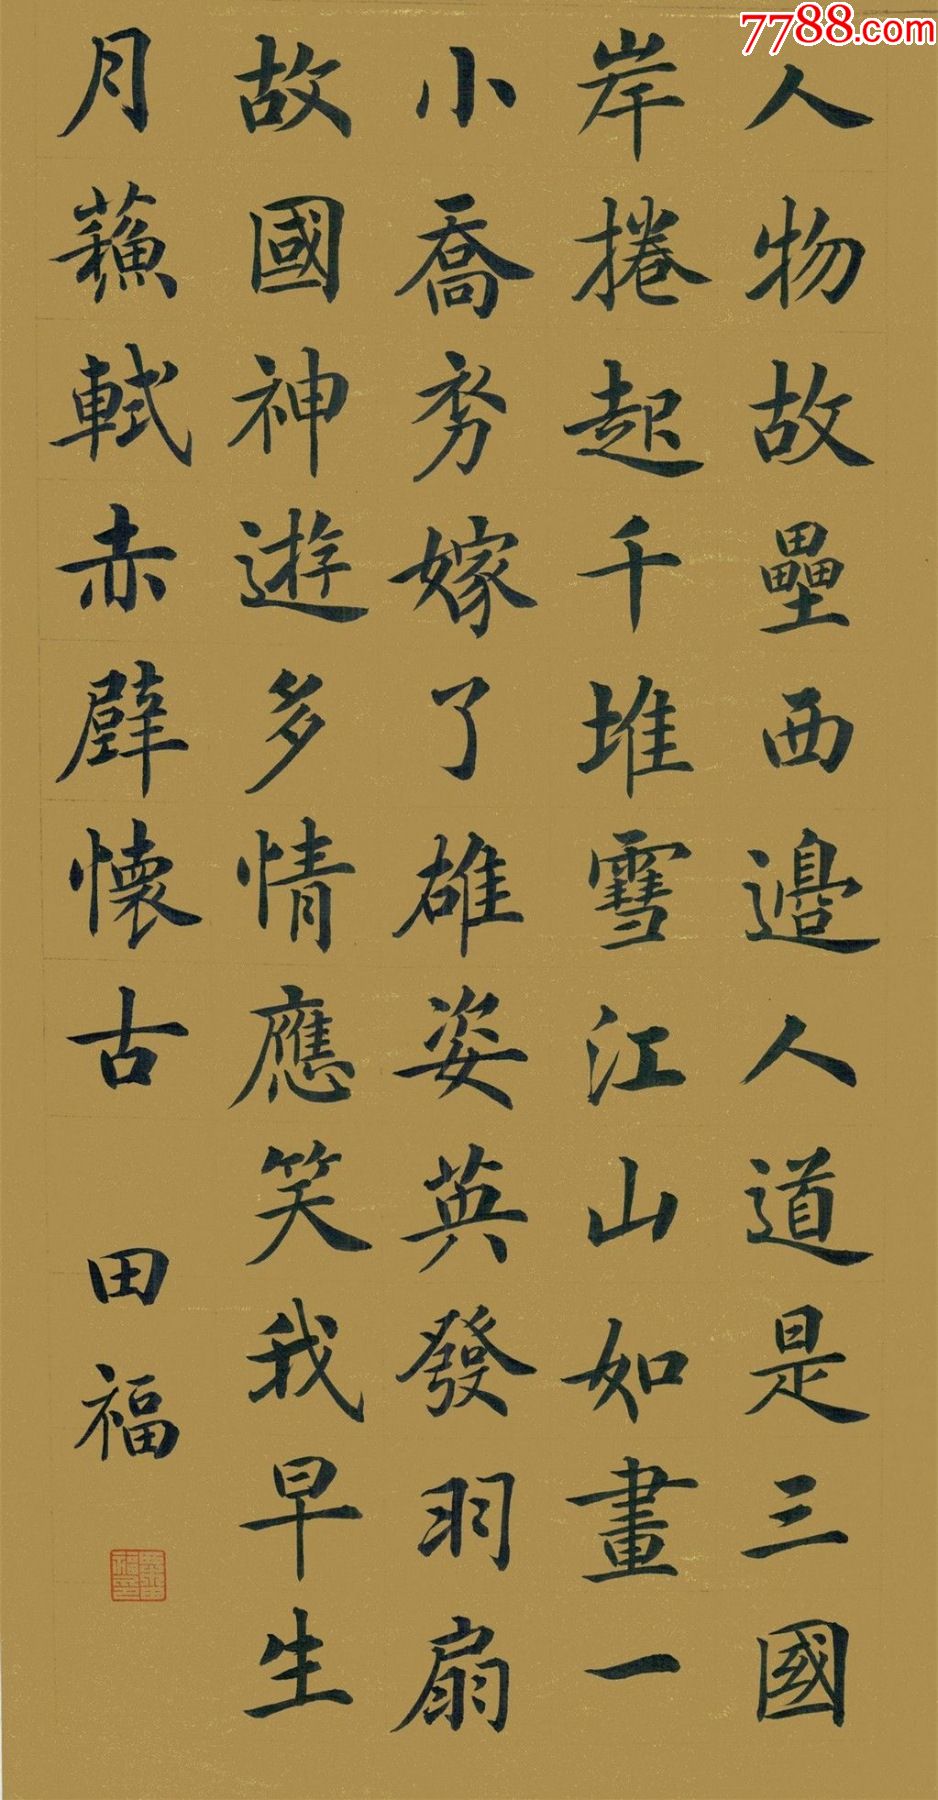 7788.com
人物故壘西邊人道是三國
岸捲起千堆雪江山如畫一
小喬初嫁了雄姿英發羽扇
故國神遊多情應笑我早生
月蘇軾赤壁懷古
田福